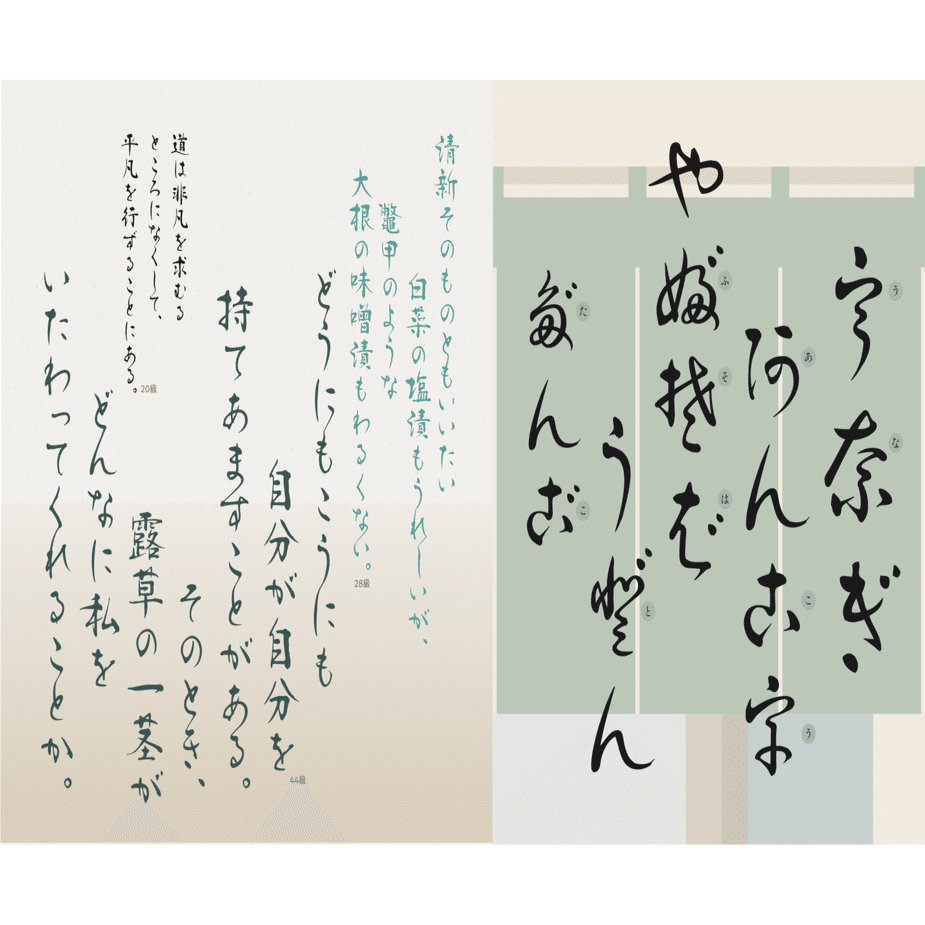 宇奈ぎ
う
な
阿ん古宇
あ
こ
う
や婦゛楚者゛
ふ
そ
は
う登゛ん
と
多゛ん古゛
た
こ
清新そのものともいいたい
白菜の塩漬もうれしいが、
鼈甲のような
大根の味噌漬もわるくない。
28級
どうにもこうにも
自分が自分を
持てあますことがある。
そのとき、
露草の一茎が
どんなに私を
いたわってくれることか。
44級
道は非凡を求むる
ところになくして、
平凡を行ずることにある。
20級